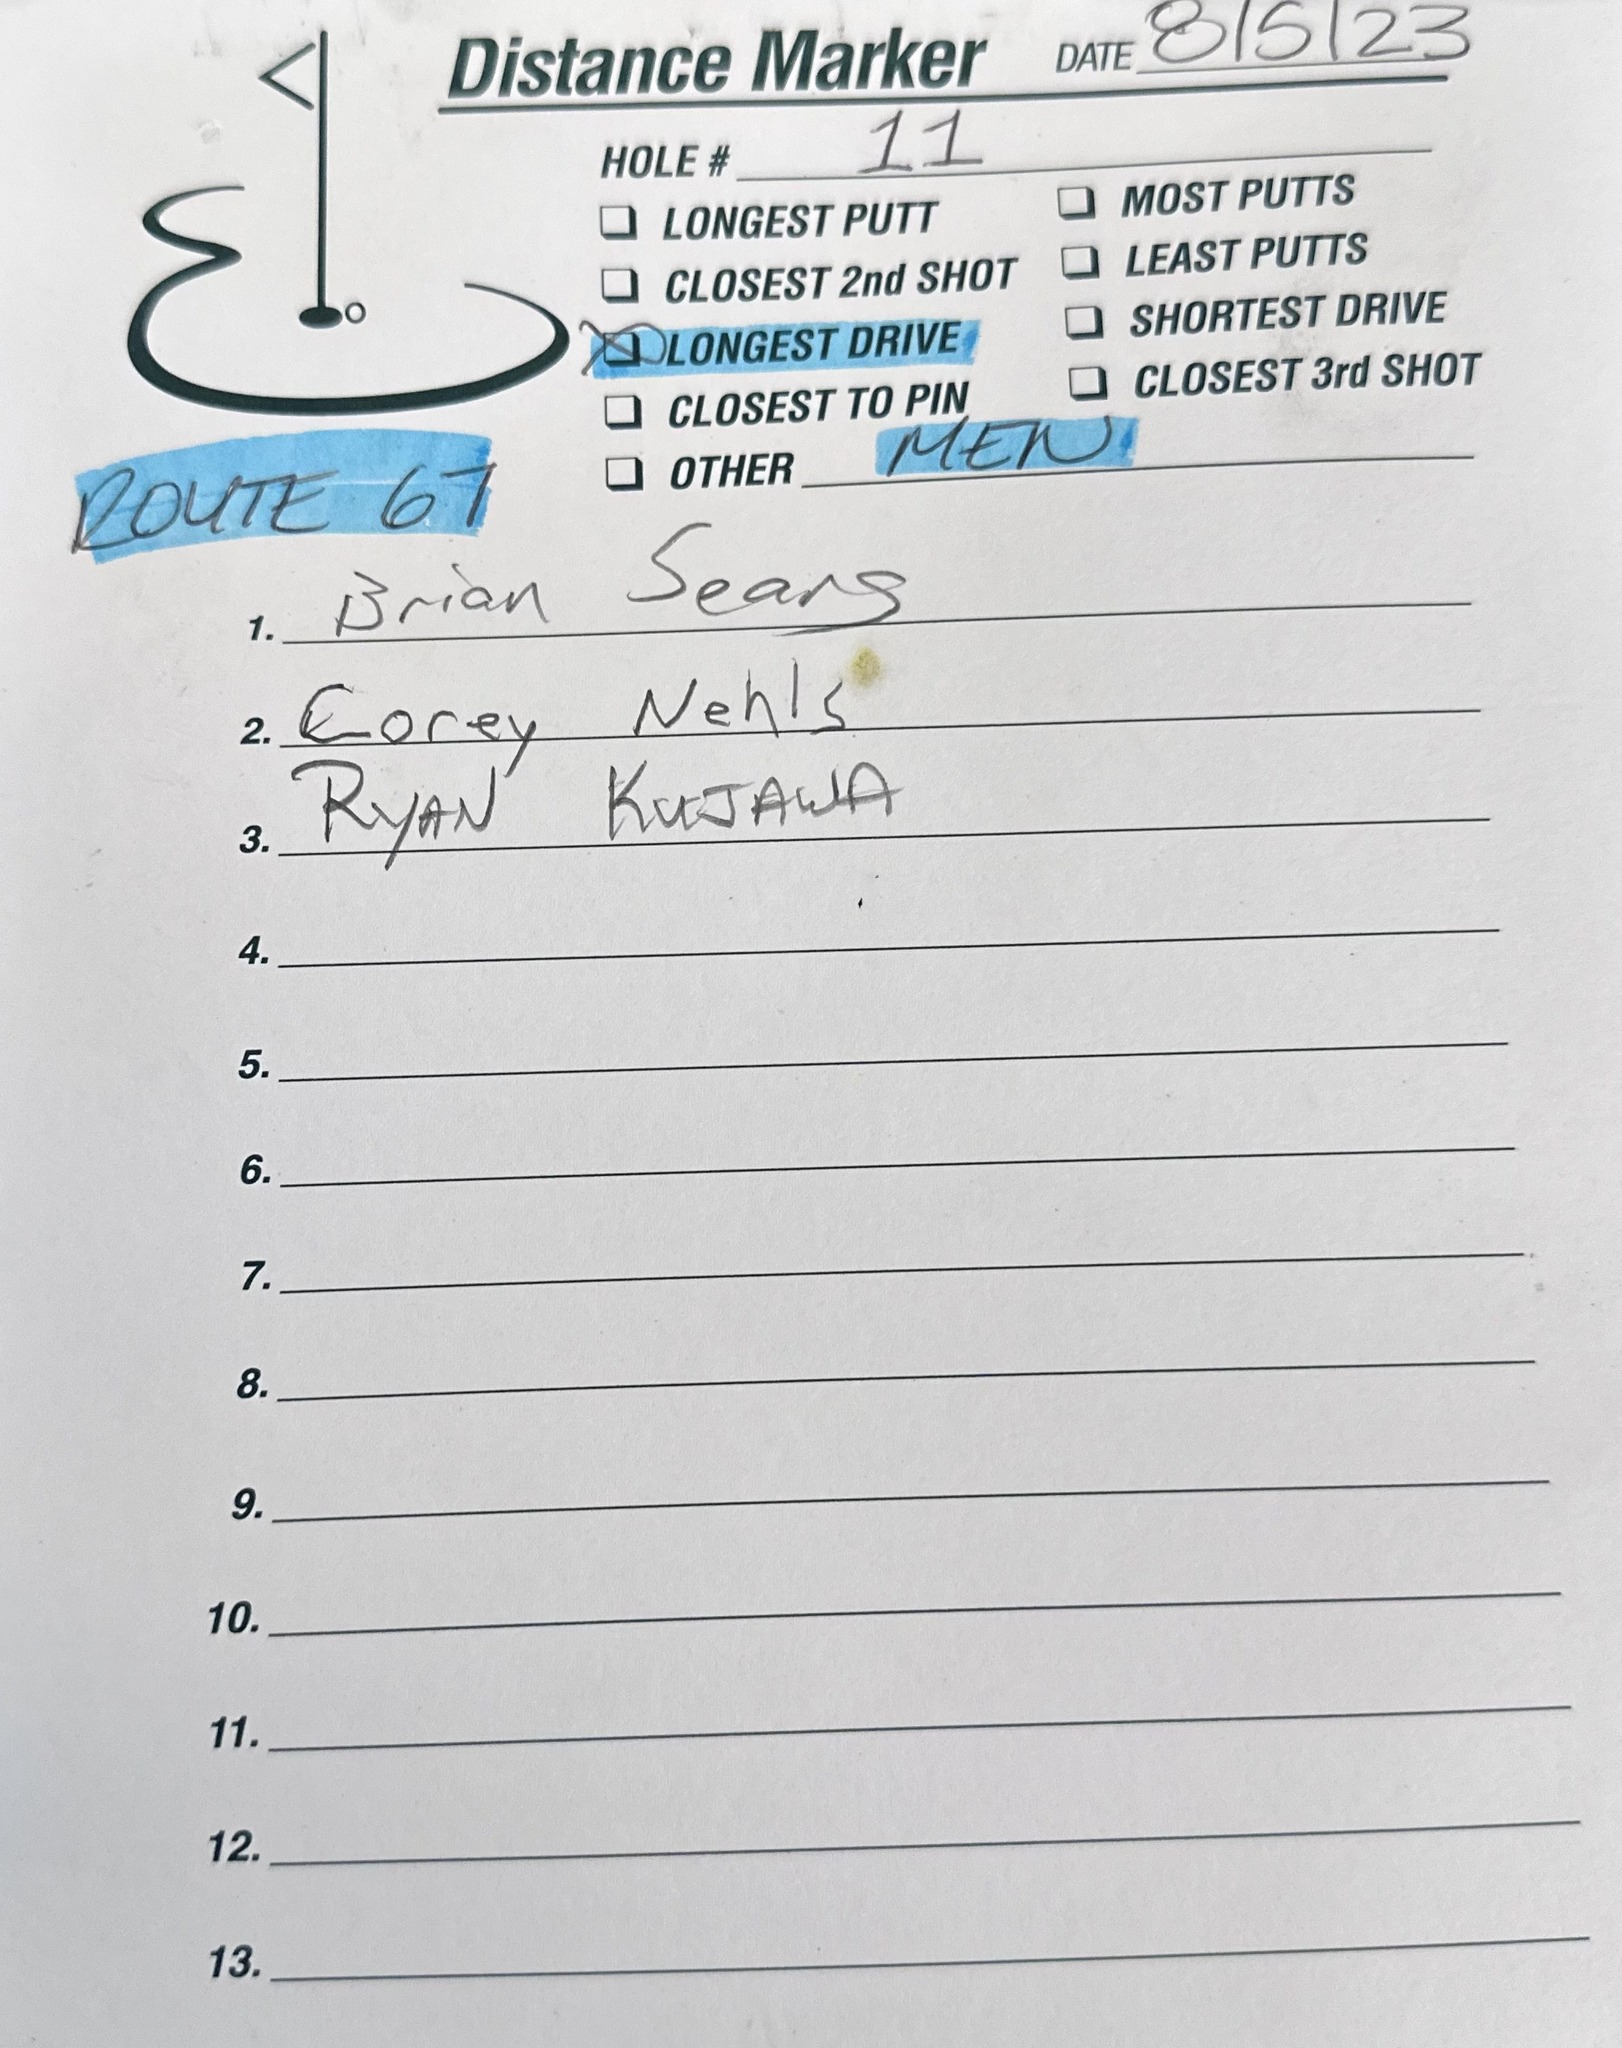 Distance Marker DATE 8/5/23
HOLE # 11
LONGEST PUTT
CLOSEST 2nd SHOT
LONGEST DRIVE
CLOSEST TO PIN
OTHER MEN
MOST PUTTS
LEAST PUTTS
SHORTEST DRIVE
CLOSEST 3rd SHOT
ROUTE 67
1. Brian Sears
2. Corey Nehls
3. RYAN KUJAWA
4.
5.
6.
7.
8.
9.
10.
11.
12.
13.